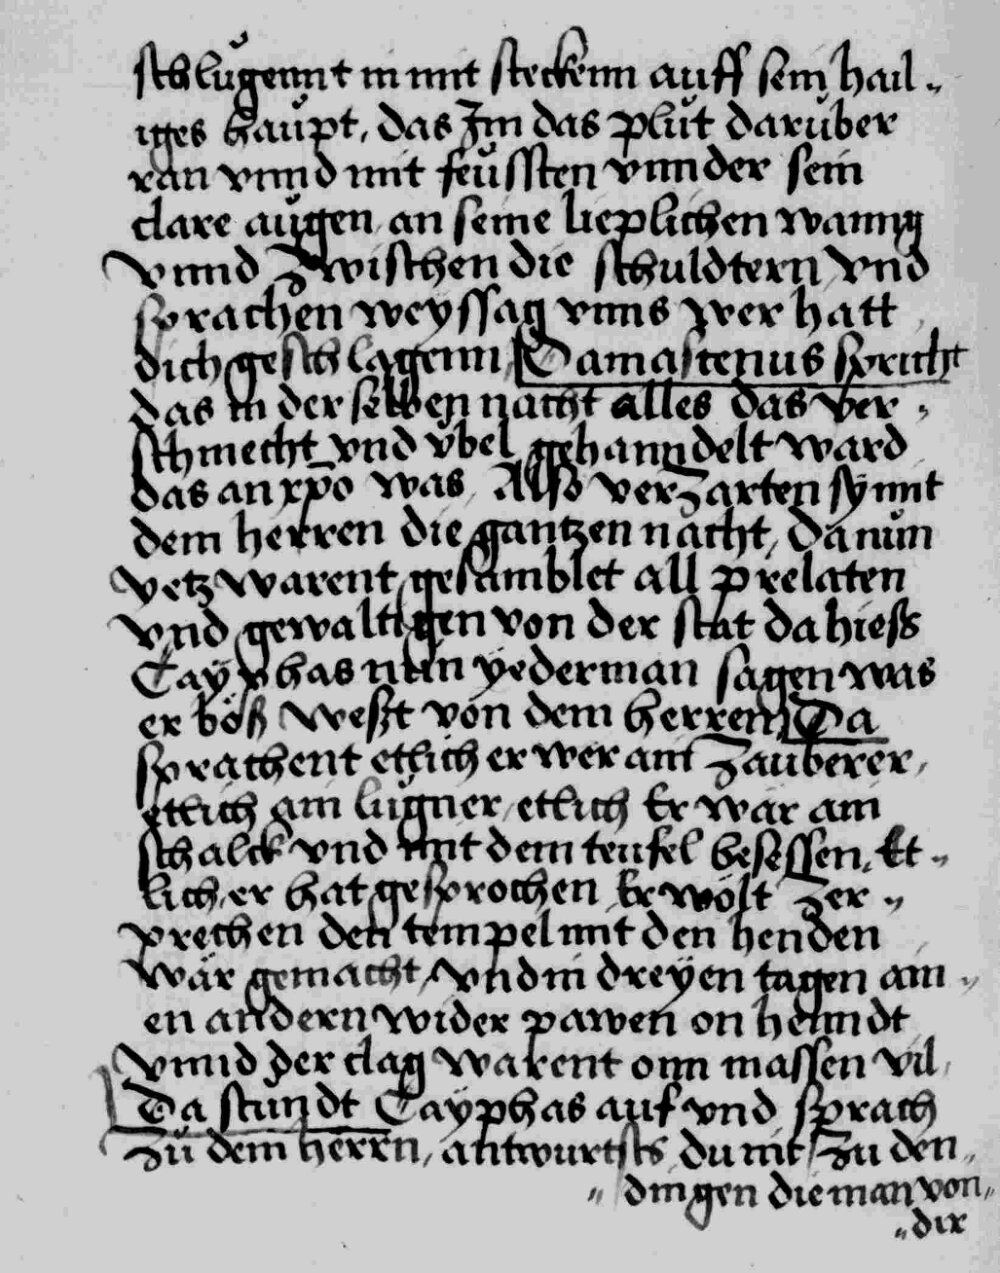 schlůgennt in mit steckenn auff sein hail„
iges haůpt, das Im das plůt darůber
ran vnnd mit feůssten vnnder sein
clare aůgen an seine lieplichen wanng
vnnd zwischen die schuldtern vnd
sprachen weyssag vnns wer hatt
dich geschlagenn, Damascenus spricht
das in der selben nacht alles das ver„
schmecht vnd v̈bel gehanndelt ward
das an xp̄o was, Also verzarten sy mit
dem herren die gantzen nacht, da nůn
yetz warent gesamblet all prelaten
vnd gewaltigen von der stat da hiess
Cayphas nůn yederman sagen was
er böß weßt von dem herren, Da
sprachent etlich er wer ain zauberer,
etlich ain lůgner, etlich Er wär ain
schalck vnd mit dem teufel besessen, Et„
lich, er hat gesprochen Er wölt zer„
prechen den tempel mit den henden
wär gemacht, vnd in dreyen tagen ain„
en andern wider pawen on henndt
vnnd der clag warent onn massen vil,
Da stundt Cayphas auf vnd sprach
zů dem herrn, antwurtsts du nit zu den„
„dingen die man von„
„dir